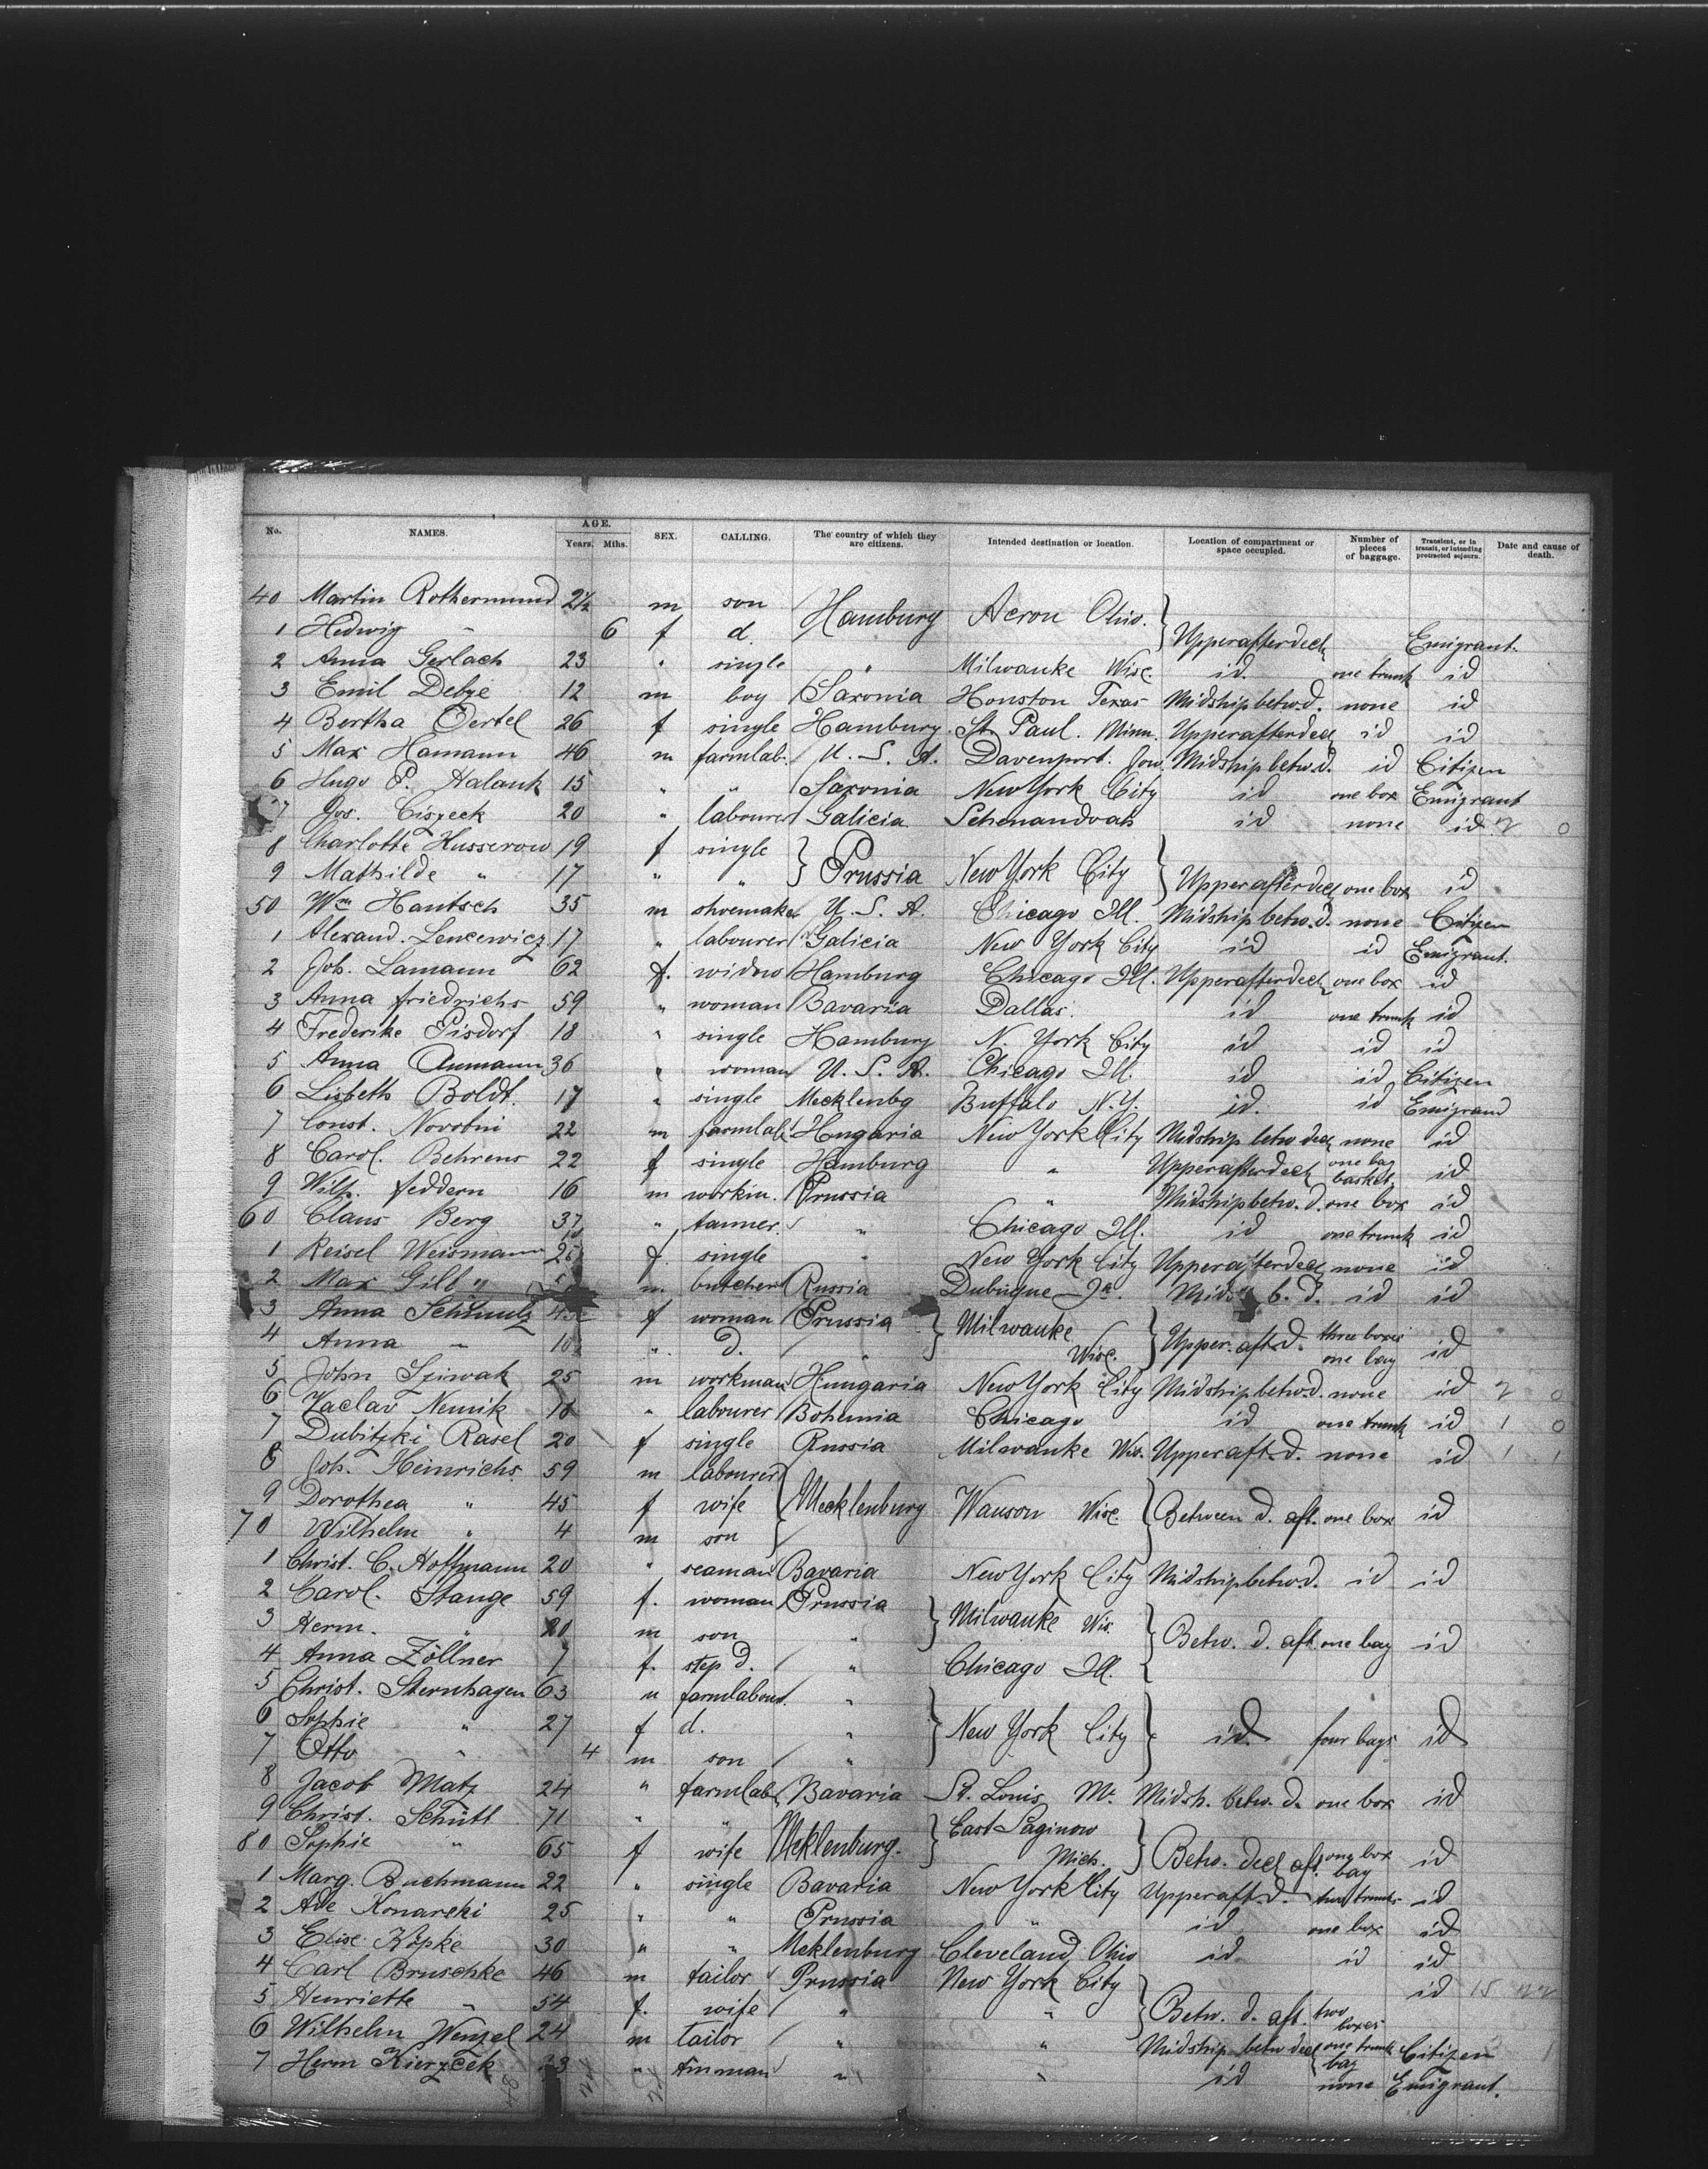 No. NAMES. AGE. Years. Mths. SEX. CALLING. The country of which they are citizens. Intended destination or location. Location of compartment or space occupied. Number of pieces of baggage. Transient, or in transit, or intending protracted sojourn. Date and cause of death.
40 Martin Rothermund 2½ m son Hamburg Acron Ohio.
1 Hedwig " 6 f d. Upperafterdeck Emigrant.
2 Anna Gerlach 23 " single " Milwauke Wisc. id. one trunk id
3 Emil Debye 12 m boy Saxonia Houston Texas Midshipbetw.d. none id
4 Bertha Oertel 26 f single Hamburg St. Paul. Minn. Upperafterdeck id id
5 Max Hamann 46 m farmlab. U. S. A. Davenport. Jow. Midshipbetw.d. id Citizen
6 Hugo P. Halank 15 " " Saxonia New York City id one box Emigrant
7 Jos. Ciszeck 20 " labourer Galicia Schenandoah id none id 2 0
8 Charlotte Husserow 19 f single
9 Mathilde " 17 " " Prussia New York City Upperafterdeck one box id
50 Wm Hantsch 35 m shoemaker U. S. A. Chicago Ill. Midshipbetw.d. none Citizen
1 Alexand. Lencewicz 17 " labourer Galicia New York City id id Emigrant.
2 Joh. Lamann 62 f. widow Hamburg Chicago Ill. Upperafterdeck one box id
3 Anna friedrichs 59 " woman Bavaria Dallas. id one trunk id
4 Frederike Pisdorf 18 " single Hamburg N. York City id id id
5 Anna Aumann 36 " woman U. S. A. Chicago Ill. id id Citizen
6 Lisbeth Boldt. 17 " single Mecklenbg Buffalo N.Y. id. id Emigrand
7 Const. Novotni 22 m farmlab. Hngaria New York City Midship betw deck none id
8 Carol. Behrens 22 f single Hamburg " Upperafterdeck one bag basket id
9 Wilh. feddern 16 m workm. Prussia " Midshipbetw.d. one box id
60 Claus Berg 37 " tanner " Chicago Ill. id one trunk id
1 Reisel Weismann f. single " New York City Upperafterdeck none id
2 Max m. butcher Russia Dubuque Ja. b. d. id id
3 Anna f woman Prussia Milwauke
4 Anna " " D. " Wisc. Upper. aft.d. three boxes one bag id
5 John 25 m workman Hungaria New York City Midshipbetw.d. none id 2 0
6 Vaclav Nemik 18 " labourer Bohemia Chicago id one trunk id 1 0
7 Dubitzki Rasel 20 f single Russia Milwauke Wis. Upperaft.d. none id 1 1
8 Joh. Heinrichs 59 m labourer
9 Dorothea " 45 f wife Mecklenburg Wauson Wisc. Between d. aft. one box id
70 Wilhelm " 4 m son
1 Christ. C. Hoffmann 20 " seaman Bavaria New York City Midshipbetw.d. id id
2 Carol. Stange 59 f. woman Prussia
3 Herm. " 20 m son " Milwauke Wis. Betw. d. aft. one bag id
4 Anna Zöllner 7 f. step d. " Chicago Ill.
5 Christ. Sternhagen 63 m farmlabour. "
6 Sophie " 27 f d. " New York City id. four bags id
7 Otto " 4 m son "
8 Jacob Matz 24 " farmlab. Bavaria St. Louis Mo. Midsh. betw. d. one box id
9 Christ. Schütt 71 " " East Saginow
80 Sophie " 65 f wife Meklenburg. Mich. Betw. deck aft. one box bag id
1 Marg. Buchmann 22 " single Bavaria New York City Upperaft.d. two trunks id
2 Ade Konarski 25 " " Prussia " id one box id
3 Elise Köpke 30 " " Meklenburg Cleveland Ohio id. id id
4 Carl Bruschke 46 m tailor Prussia New York City id 15 22
5 Henriette " 54 f. wife " " Betw. d. aft. two boxes
6 Wilhelm Wenzel 24 m tailor " " Midship betw deck one trunk bag Citizen
7 Herm Kierzcek " tinman " " id none Emigrant.